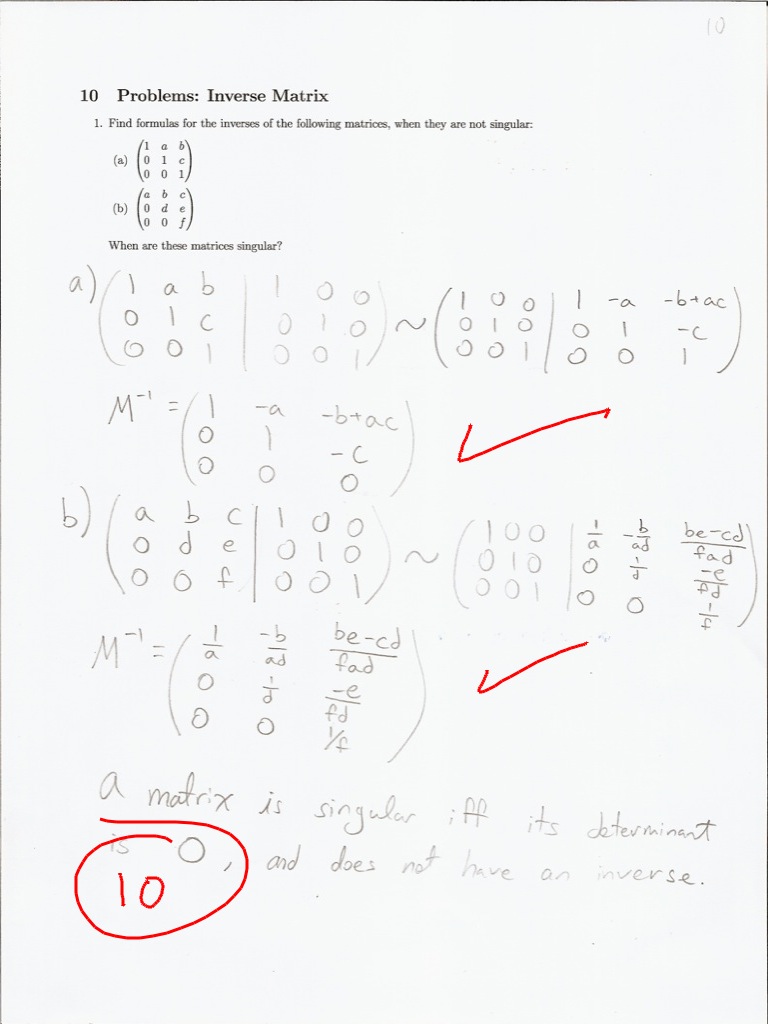 10
10 Problems: Inverse Matrix
1. Find formulas for the inverses of the following matrices, when they are not singular:
(a) (1 a b
0 1 c
0 0 1)
(b) (a b c
0 d e
0 0 f)
When are these matrices singular?
a) (1 a b | 1 0 0 ~ (1 0 0 | 1 -a -b+ac
0 1 c | 0 1 0 0 1 0 | 0 1 -c
0 0 1 | 0 0 1) 0 0 1 | 0 0 1)
M⁻¹ = (1 -a -b+ac
0 1 -c
0 0 0)
b) (a b c | 1 0 0 ~ (1 0 0 | 1/a -b/ad be-cd/fad
0 d e | 0 1 0 0 1 0 | 0 1/d -e/fd
0 0 f | 0 0 1) 0 0 1 | 0 0 1/f)
M⁻¹ = (1/a -b/ad be-cd/fad
0 1/d -e/fd
0 0 1/f)
a matrix is singular iff its determinant
is 0, and does not have an inverse.
10